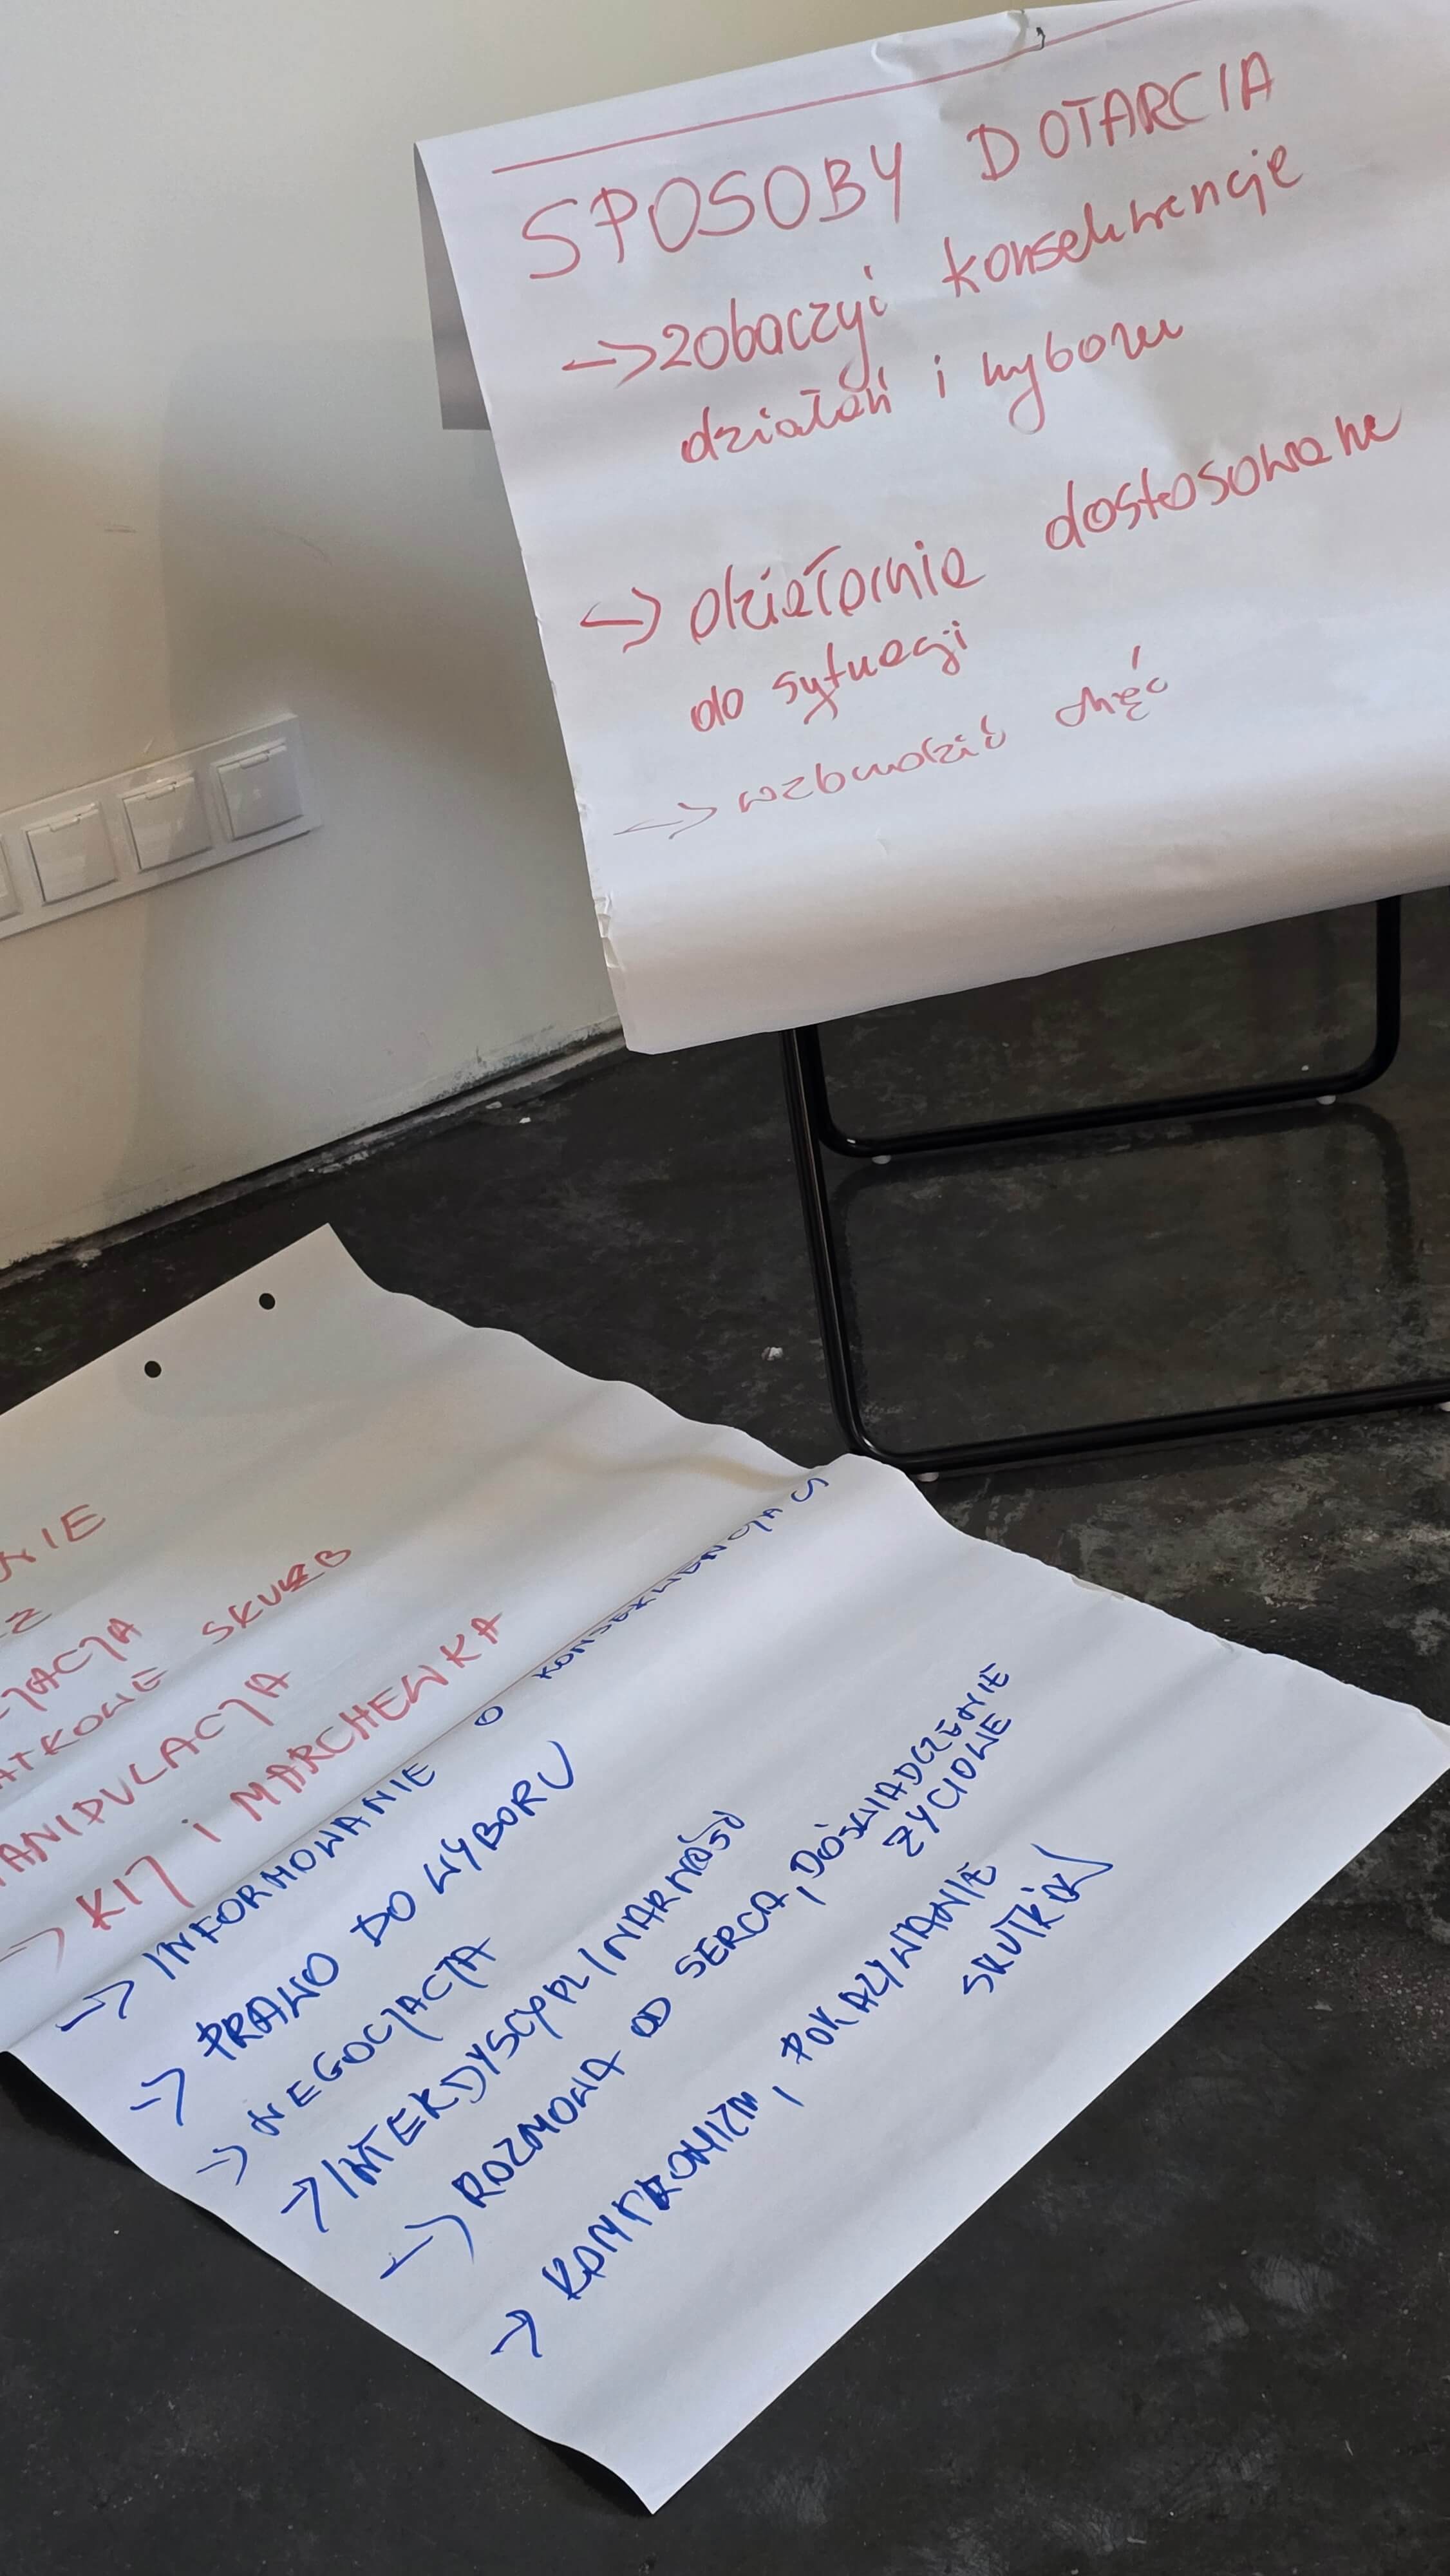 SPOSOBY DOTARCIA
→ zobaczyć konsekwencje
działań i wyboru
→ działania dostosowane
do sytuacji
→ wzbudzić chęć
NIE
JACJA
ATKOWE SKUTEB
ANIPULACJA
→ KIJ i MARCHEWKA
→ INFORMOWANIE O KONSEKWENCJACH
→ PRAWO DO WYBORU
→ NEGOCJACJA
→ INTERDYSCYPLINARNOŚĆ
→ ROZMOWA OD SERCA, DOŚWIADCZENIE
ŻYCIOWE
→ KOMPROMIZM, POKAZYWANIE
SKUTKÓW